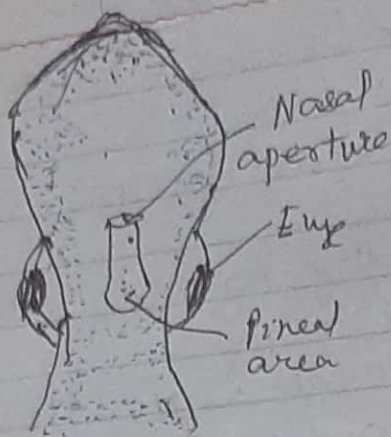 Nasal
aperture
Eye
Pineal
area